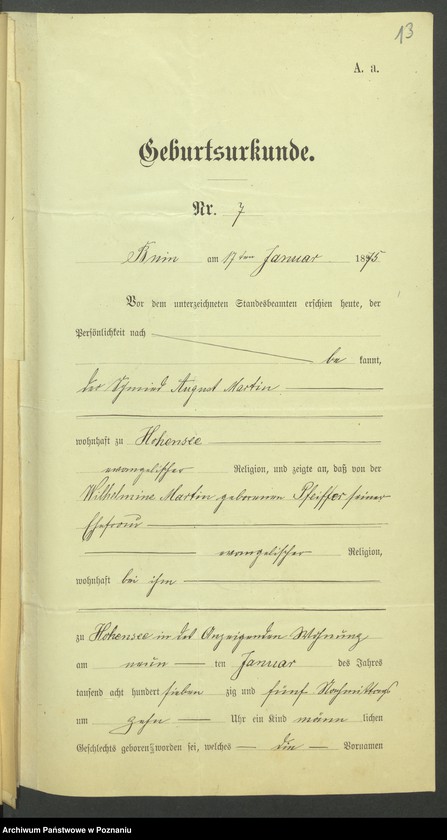 13
A. a.
Geburtsurkunde.
Nr. 7
Knin am 17ten Januar 1875
Vor dem unterzeichneten Standesbeamten erschien heute, der
Persönlichkeit nach
be kannt,
der Schmied August Martin
wohnhaft zu Hohensee
evangelischer Religion, und zeigte an, daß von der
Wilhelmine Martin geborenen Pfeiffer seiner
Ehefrau
evangelischer Religion,
wohnhaft bei ihm
zu Hohensee in des Anzeigenden Wohnung
am neun ten Januar des Jahres
tausend acht hundert sieben zig und fünf Nachmittags
um zehn Uhr ein Kind männ lichen
Geschlechts geboren worden sei, welches die Vornamen
Archiwum Państwowe w Poznaniu